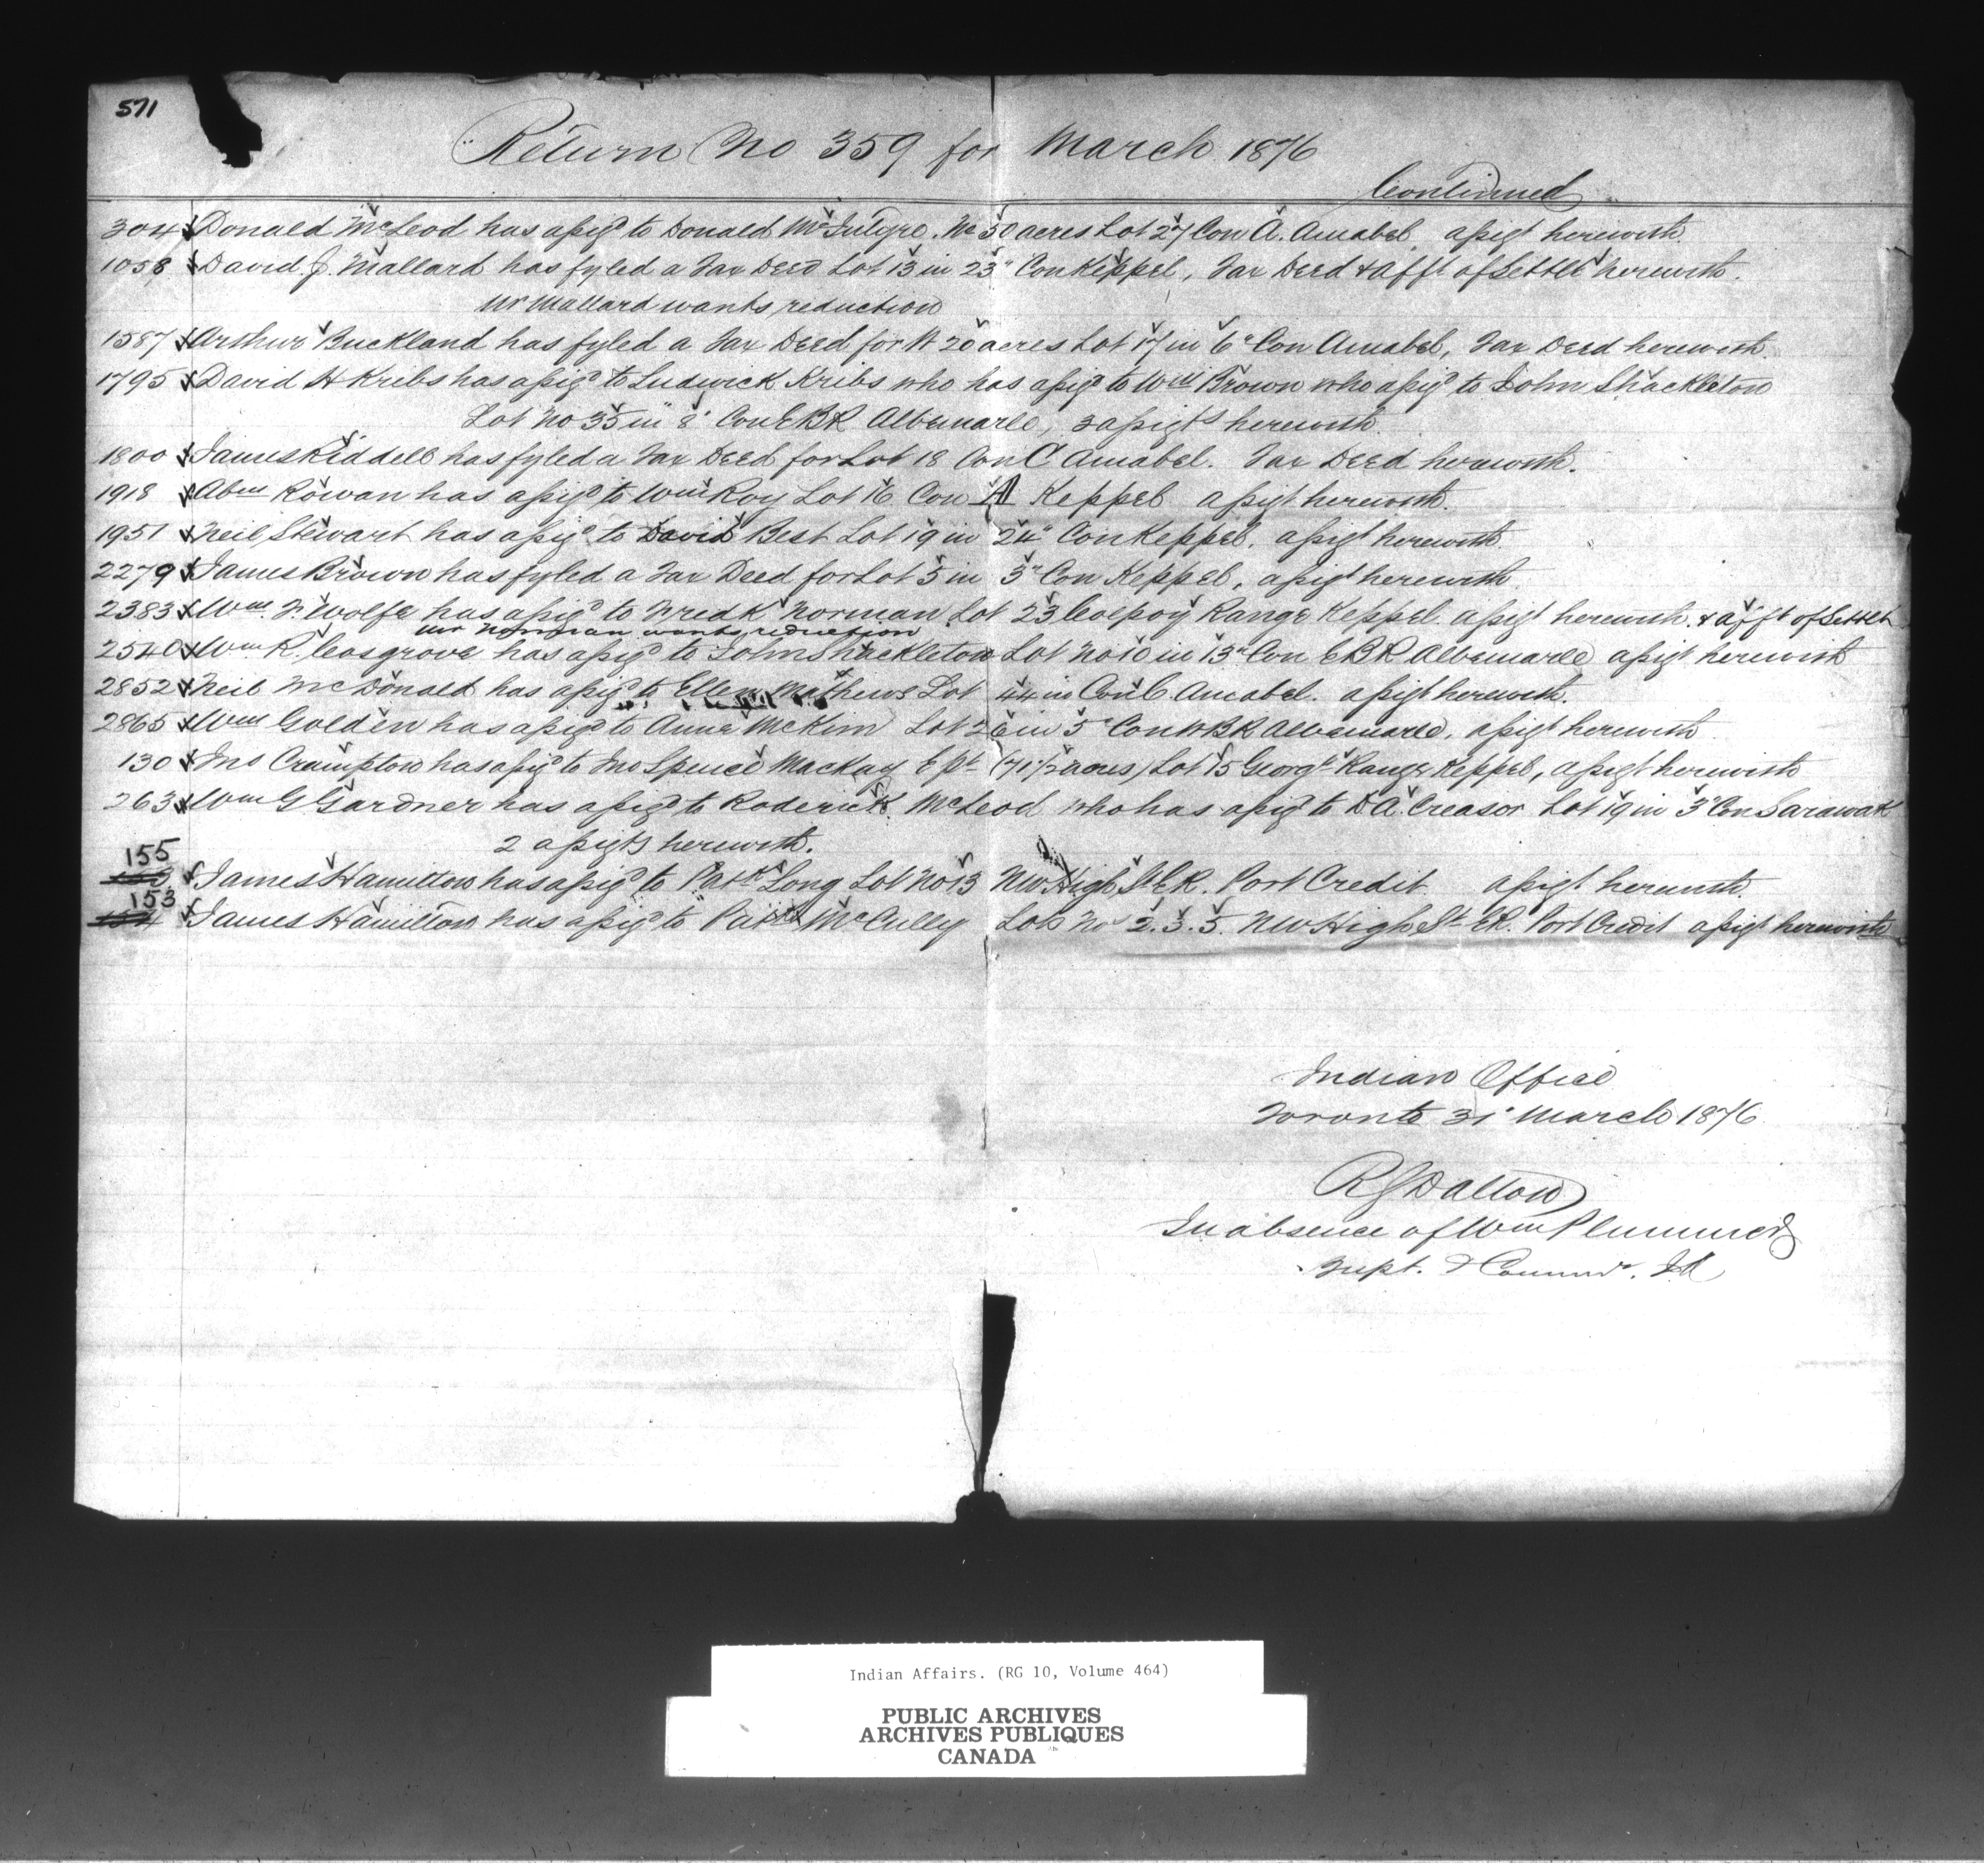 571
Return No 359 for March 1876
Continued
304 Donald McLeod has assigd to Donald McIntyre. 50 acres Lot 27 Con A. Amabel assigt herewith.
1058 David J. Mallard has fyled a Tax Deed Lot 13 in 23" Con Keppel, Tax Deed & afft of Settlt herewith.
Mr Mallard wants reduction
1587 Arthur Buckland has fyled a Tax Deed for N 20 acres Lot 17 in 6" Con Amabel, Tax Deed herewith.
1795 David H Kribs has assigd to Ludwick Kribs who has assigd to Wm Brown who assigd to John Shackleton
Lot No 35 in 8" Con EBR Albemarle, 3 assigts herewith.
1800 James Riddell has fyled a Tax Deed for Lot 18 Con C Amabel. Tax Deed herewith.
1918 Abm Rowan has assigd to Wm Roy Lot 16 Con Keppel assigt herewith.
1951 Neil Stewart has assigd to David Best Lot 19 in 24" Con Keppel, assigt herewith.
2279 James Brown has fyled a Tax Deed for Lot 5 in 3" Con Keppel, assigt herewith.
2383 Wm. F. Wolfe has assigd to Fredk Norman Lot 23 Colpoy Range Keppel assigt herewith & afft of Settlt
Mr Norman wants reduction
2540 Wm R. Cosgrove has assigd to John Shackleton Lot No 10 in 13" Con EBR Albemarle assigt herewith
2852 Neil McDonald has assigd to Ellen Mathews Lot 44 in Con C. Amabel. assigt herewith.
2865 Wm Golden has assigd to Anne McKim Lot 26 in 5" Con WBR Albemarle, assigt herewith.
130 Jno Crampton has assigd to Jno Spence Mackay E Pt (71 1/2 acres) Lot 15 Georgn Range Keppel, assigt herewith
263 Wm G. Gardner has assigd to Roderick McLeod who has assigd to D A. Creasor Lot 19 in 3" Con Sarawak
2 assigts herewith.
155
James Hamilton has assigd to Patk Long Lot No 13 NW High St CR. Port Credit assigt herewith.
153
154 James Hamilton has assigd to Patk McCulley Lots Nos 2. 3. 5. NW High St CR. Port Credit assigt herewith
Indian Office
Toronto 31" March 1876
R G Dalton
In absence of Wm Plummer
Supt. & Commr. IA
Indian Affairs. (RG 10, Volume 464)
PUBLIC ARCHIVES
ARCHIVES PUBLIQUES
CANADA